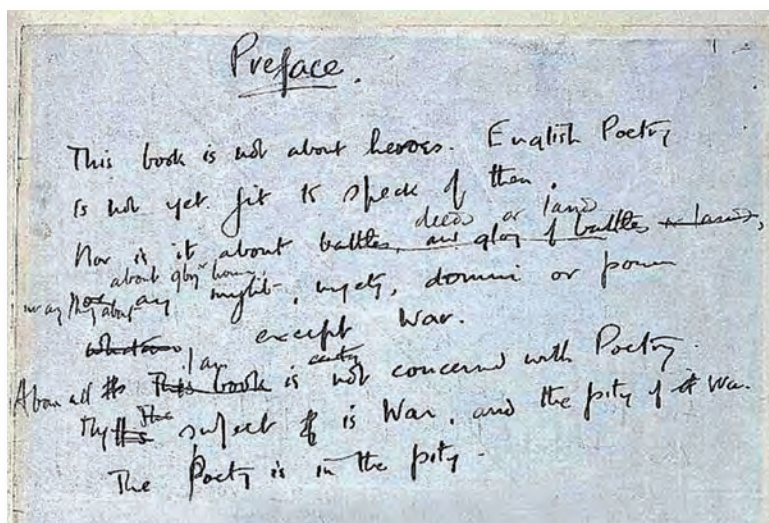 Preface.
This book is not about heroes. English Poetry
is not yet fit to speak of them.
deeds or lands
Nor is it about battles, and glory of battles or lands,
about glory honour,
nor anything about any might, majesty, dominion or power
whatever
except War.
I am
Above all This book is not concerned with Poetry.
My The subject of is War, and the pity of War.
The Poetry is in the pity.